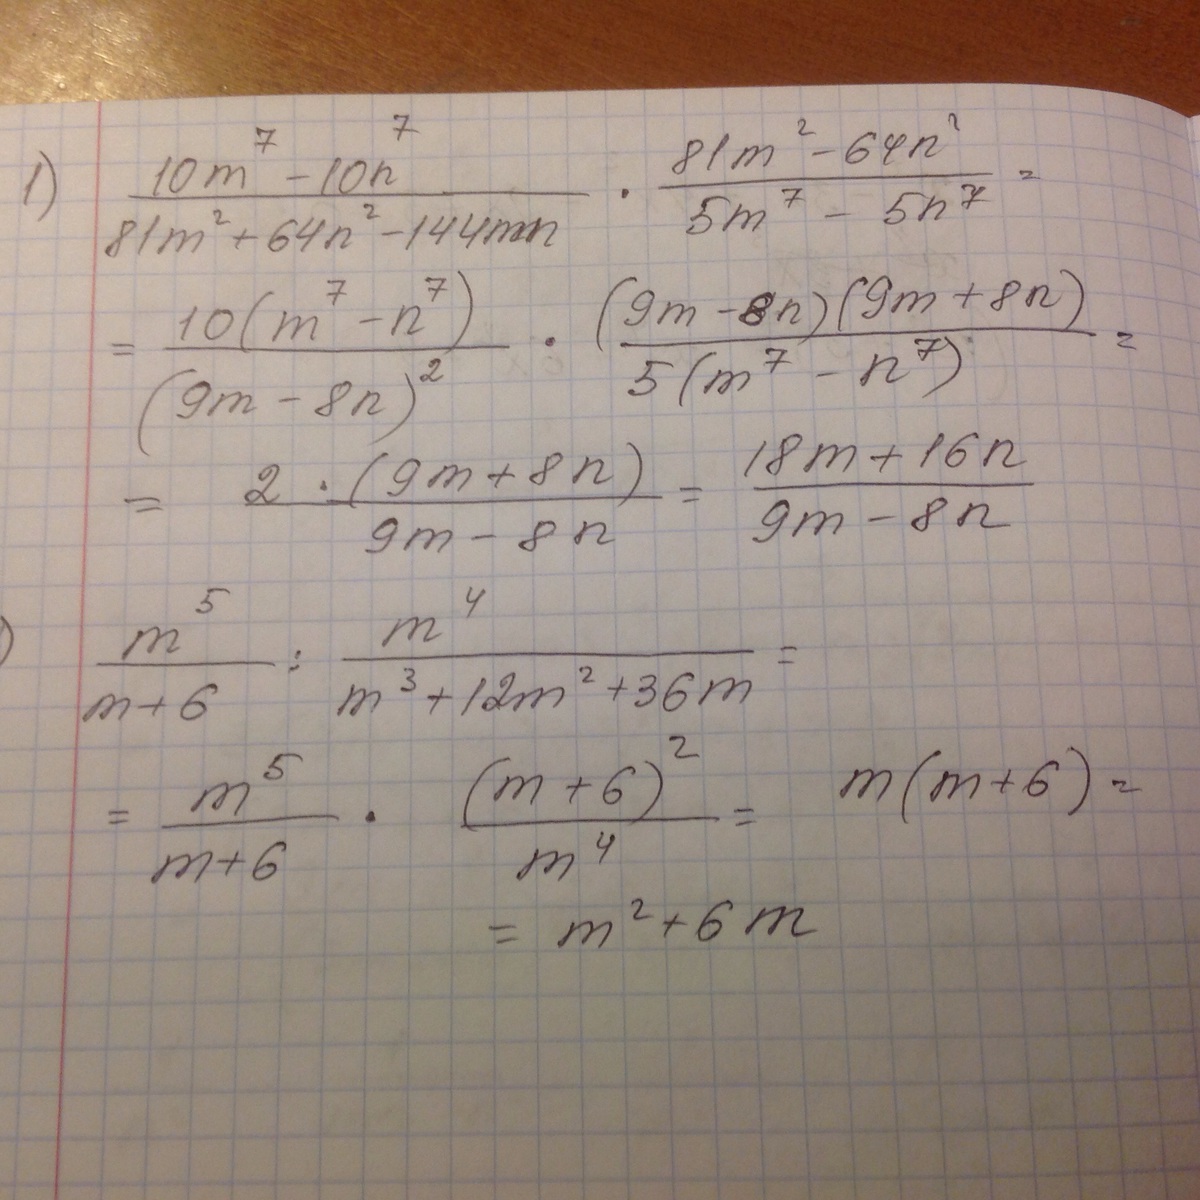 1) (10m⁷ - 10n⁷)/(81m² + 64n² - 144mn) · (81m² - 64n²)/(5m⁷ - 5n⁷) =
= 10(m⁷ - n⁷)/(9m - 8n)² · (9m - 8n)(9m + 8n)/5(m⁷ - n⁷) =
= 2 · (9m + 8n)/(9m - 8n) = (18m + 16n)/(9m - 8n)
) m⁵/(m + 6) : m⁴/(m³ + 12m² + 36m) =
= m⁵/(m + 6) · (m + 6)²/m⁴ = m(m + 6) =
= m² + 6m